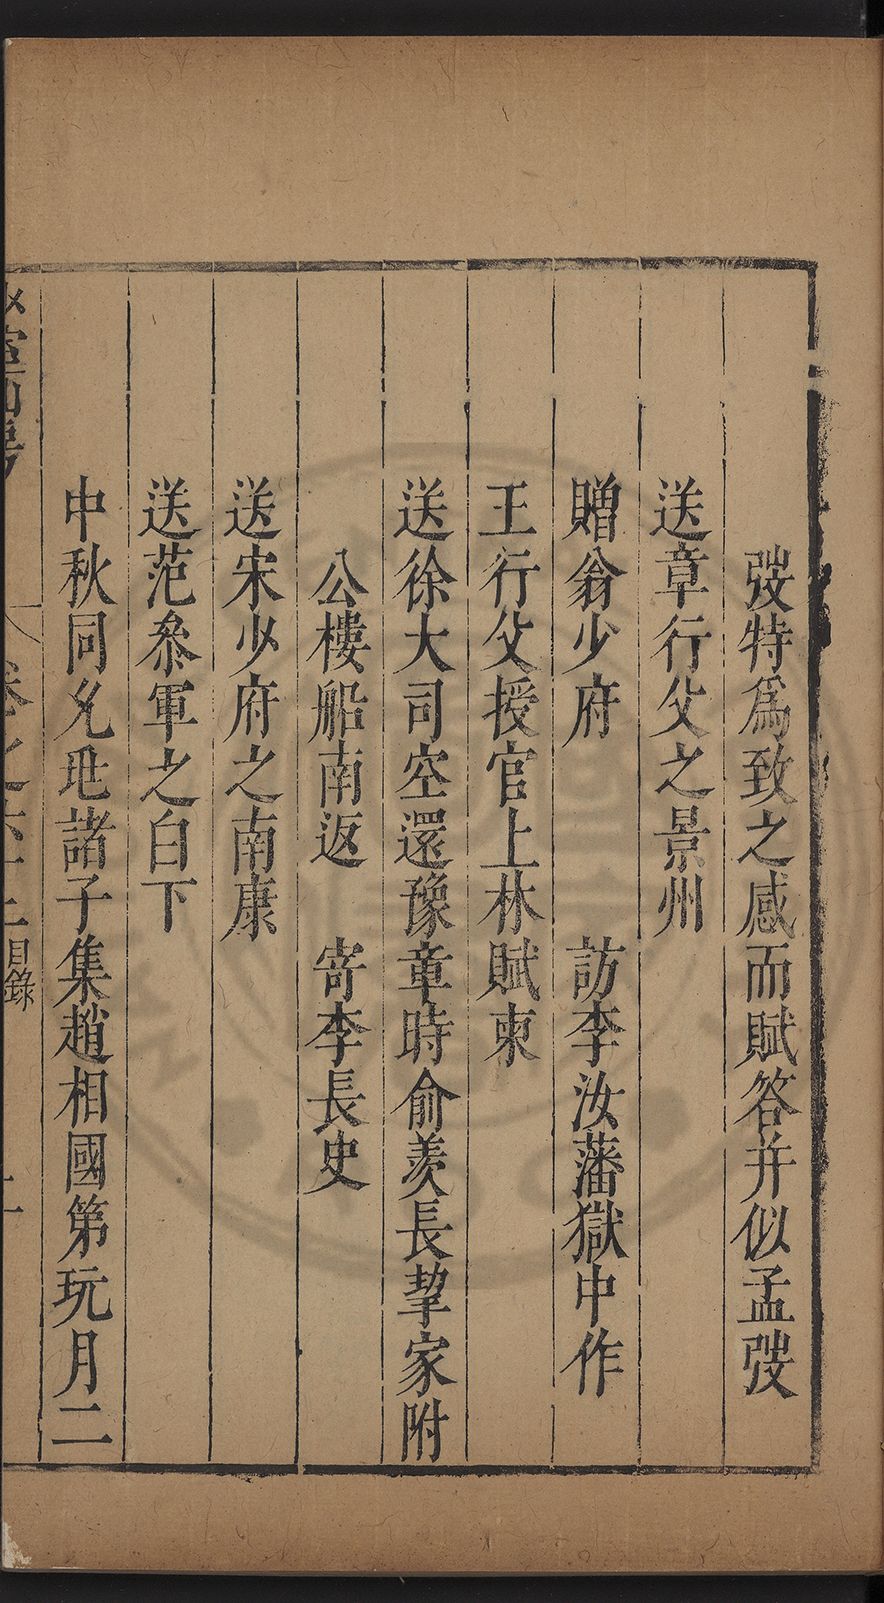 弢特爲致之感而賦答并似孟弢
送章行父之景州
贈翁少府 訪李汝藩獄中作
王行父授官上林賦柬
送徐大司空還豫章時俞羨長挈家附
公樓船南返 寄李長史
送宋少府之南康
送范叅軍之白下
中秋同允兆諸子集趙相國第玩月二
目錄